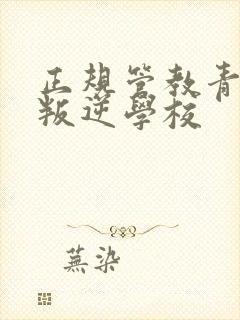 正規管教青
叛逆學校
蕪染